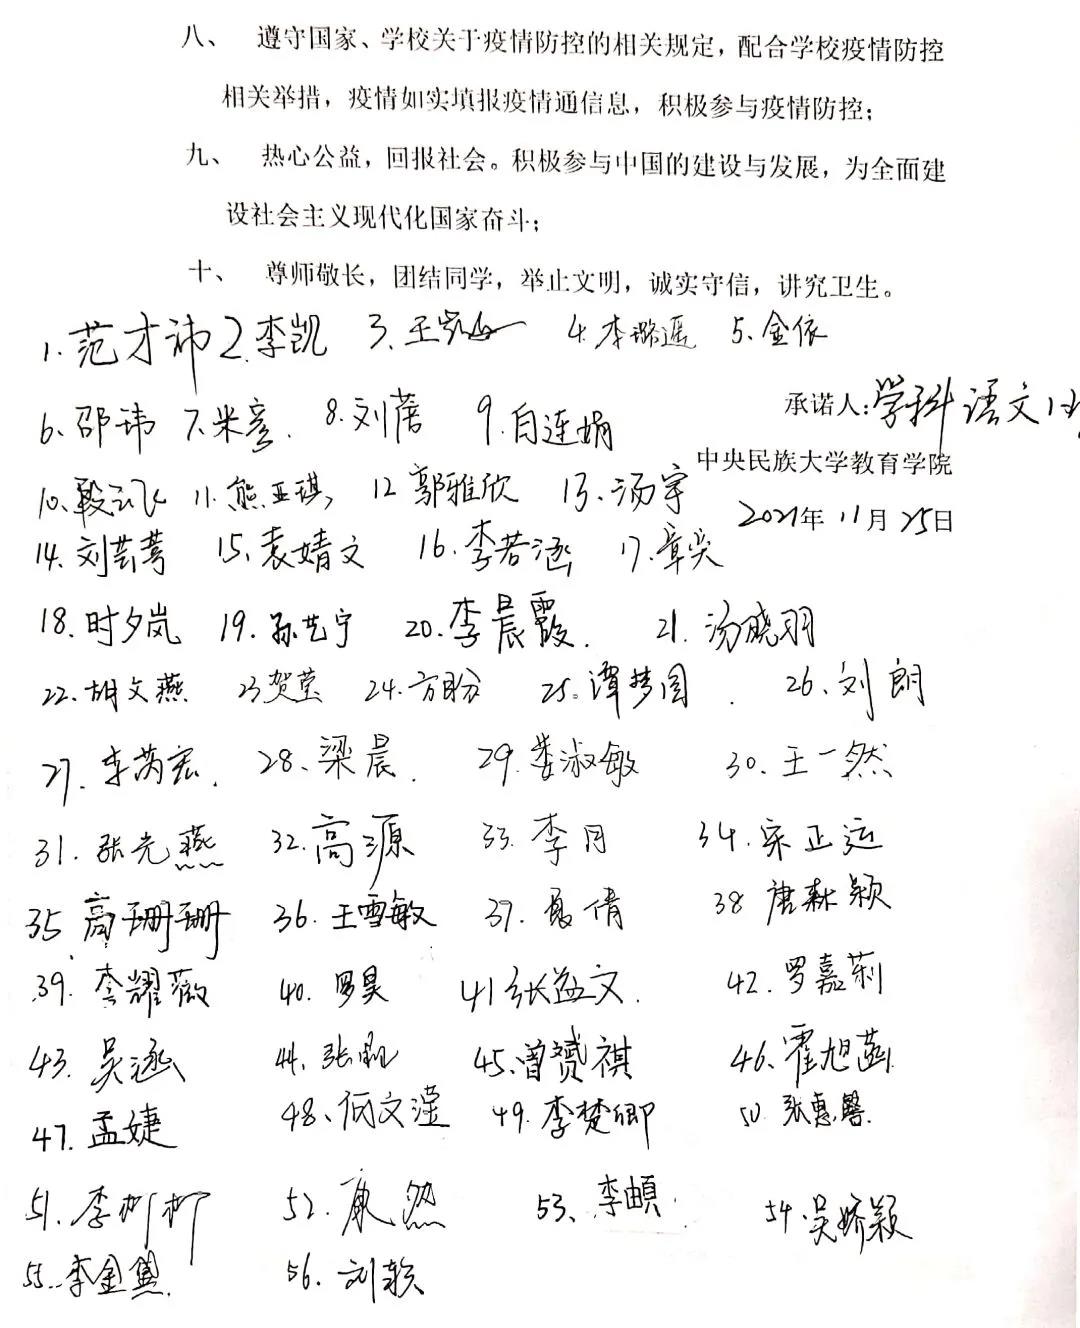 八、 遵守国家、学校关于疫情防控的相关规定，配合学校疫情防控
相关举措，疫情如实填报疫情通信息，积极参与疫情防控；
九、 热心公益，回报社会。积极参与中国的建设与发展，为全面建
设社会主义现代化国家奋斗；
十、 尊师敬长，团结同学，举止文明，诚实守信，讲究卫生。
1.范才沛 2.李凯 3、王 4.李璐遥 5、金依
承诺人:学科语文1班
6、邵玮 7.米彦. 8.刘蓓 9.白连娟
中央民族大学教育学院
10、段云飞 11.熊亚琪, 12 郭雅欣 13.汤宇
2021年11月25日
14.刘芸 15.袁婧文 16.李若涵 17.章奕
18.时夕岚 19.孙艺宁 20.李晨霞. 21.汤晓羽
22.胡文燕 23贺莹 24.方盼 25.谭梦圆. 26、刘朗
27.李芮宏. 28、梁晨. 29.娄淑敏 30.王一然
31.张光燕 32.高源 33.李月 34.宋正远
35 高珊珊 36.王雪敏 37.倩 38 唐森颖
39.李耀薇 40.罗昊 41张益文. 42.罗嘉莉
43.吴涵 44.张 45.曾赟祺 46、霍旭菡.
47.孟婕 48、文滢 49.李楚卿 50.张惠馨.
51.李柳柳 52.康然 53、李頔. 54.吴娇颖
55.李金 56.刘轶